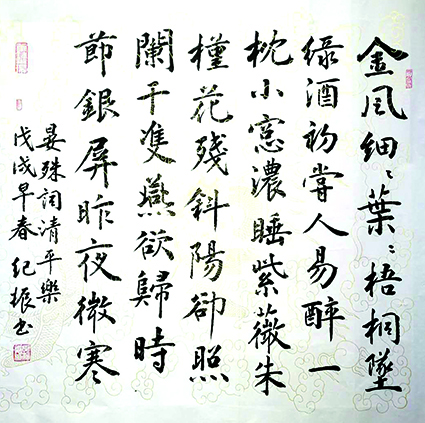 金风細〻葉〻梧桐墜
綠酒初嘗人易醉一
枕小窓濃睡紫薇朱
槿花殘斜陽卻照
闌干雙燕欲歸時
節銀屏昨夜微寒
晏殊詞清平樂
戊戌早春 纪振书